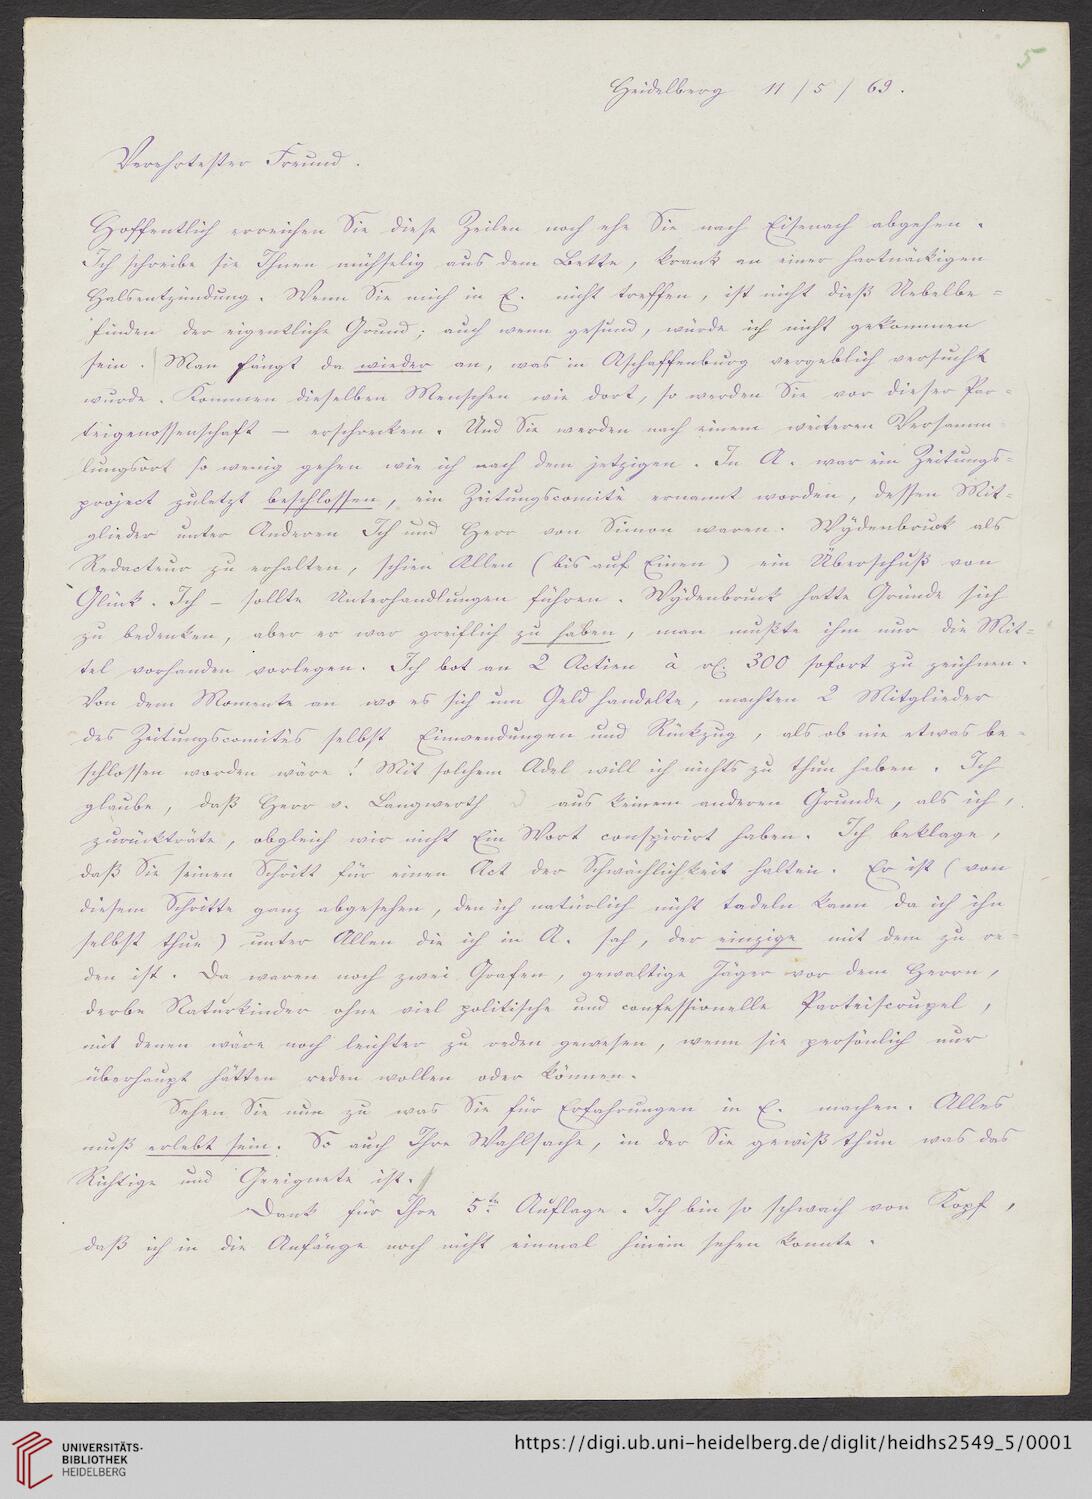 5
Heidelberg 11/5/69.
Verehrtester Freund.
Hoffentlich erreichen Sie diese Zeilen noch ehe Sie nach Eisenach abgehen.
Ich schreibe sie Ihnen mühselig aus dem Bette, krank an einer hartnäckigen
Halsentzündung. Wenn Sie mich in E. nicht treffen, ist nicht dieß Uebelbe=
finden der eigentliche Grund; auch wenn gesund, würde ich nicht gekommen
sein. Man fängt da wieder an, was in Aschaffenburg vergeblich versucht
wurde. Kommen dieselben Menschen wie dort, so werden Sie vor dieser Par=
teigenossenschaft — erschrecken. Und Sie werden nach einem weiteren Versamm=
lungsort so wenig gehen wie ich nach dem jetzigen. In A. war ein Zeitungs=
project zuletzt beschlossen, ein Zeitungscomité ernannt worden, dessen Mit=
glieder unter Anderen Ich und Herr von Simon waren. Wydenbruck als
Redacteur zu erhalten, schien Allen (bis auf Einen) ein Überschuß von
Glück. Ich – sollte Unterhandlungen führen. Wydenbruck hatte Gründe sich
zu bedenken, aber er war greiflich zu haben, man mußte ihm nur die Mit=
tel vorhanden vorlegen. Ich bot an 2 Actien à 300 sofort zu zeichnen.
Von dem Momente an wo es sich um Geld handelte, machten 2 Mitglieder
des Zeitungscomités selbst Einwendungen und Rückzug, als ob nie etwas be=
schlossen worden wäre! Mit solchem Adel will ich nichts zu thun haben. Ich
glaube, daß Herr v. Langwerth aus keinem anderen Grunde, als ich,
zurückträte, obgleich wir nicht Ein Wort conspirirt haben. Ich beklage,
daß Sie seinen Schritt für einen Act der Schwächlichkeit halten. Er ist (von
diesem Schritte ganz abgesehen, den ich natürlich nicht tadeln kann da ich ihn
selbst thue) unter Allen die ich in A. sah, der einzige mit dem zu re=
den ist. Da waren noch zwei Grafen, gewaltige Jäger vor dem Herrn,
derbe Naturkinder ohne viel politische und confessionelle Parteiscrupel,
mit denen wäre noch leichter zu reden gewesen, wenn sie persönlich nur
überhaupt hätten reden wollen oder können.
Sehen Sie nun zu was Sie für Erfahrungen in E. machen. Alles
muß erlebt sein. So auch Ihre Wahlsache, in der Sie gewiß thun was das
Richtige und Geeignete ist.
Dank für Ihre 5te Auflage. Ich bin so schwach von Kopf,
daß ich in die Anfänge noch nicht einmal hinein sehen konnte.
UNIVERSITÄTS-
BIBLIOTHEK
HEIDELBERG
https://digi.ub.uni-heidelberg.de/diglit/heidhs2549_5/0001